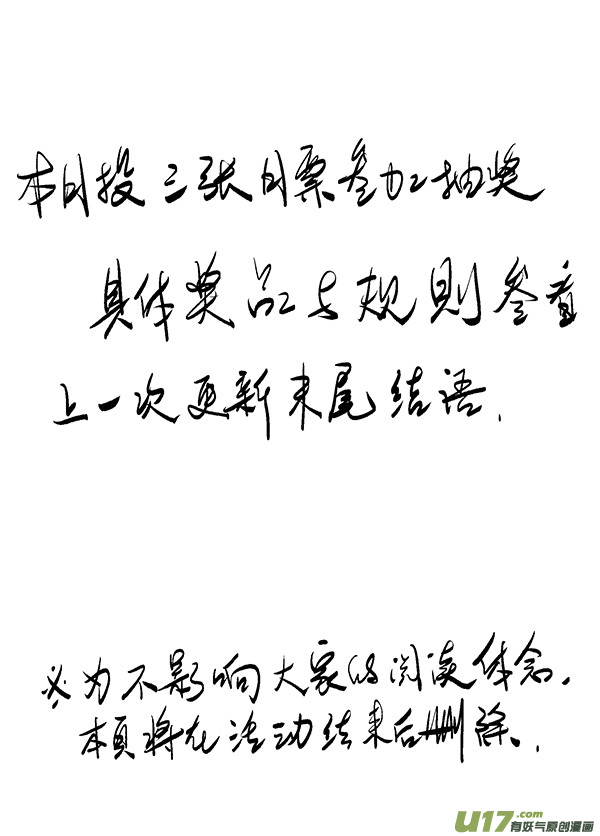 本月投三张月票参加抽奖
具体奖品与规则参看
上一次更新末尾结语.
※为不影响大家的阅读体念,
本页将在活动结束后删除..
U17.com
有妖气原创漫画